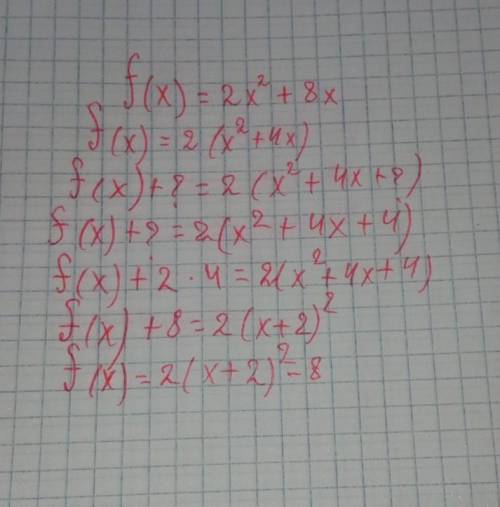 f(x) = 2x² + 8x
f(x) = 2(x² + 4x)
f(x) + ? = 2(x² + 4x + ?)
f(x) + ? = 2(x² + 4x + 4)
f(x) + 2 · 4 = 2(x² + 4x + 4)
f(x) + 8 = 2(x + 2)²
f(x) = 2(x + 2)² - 8